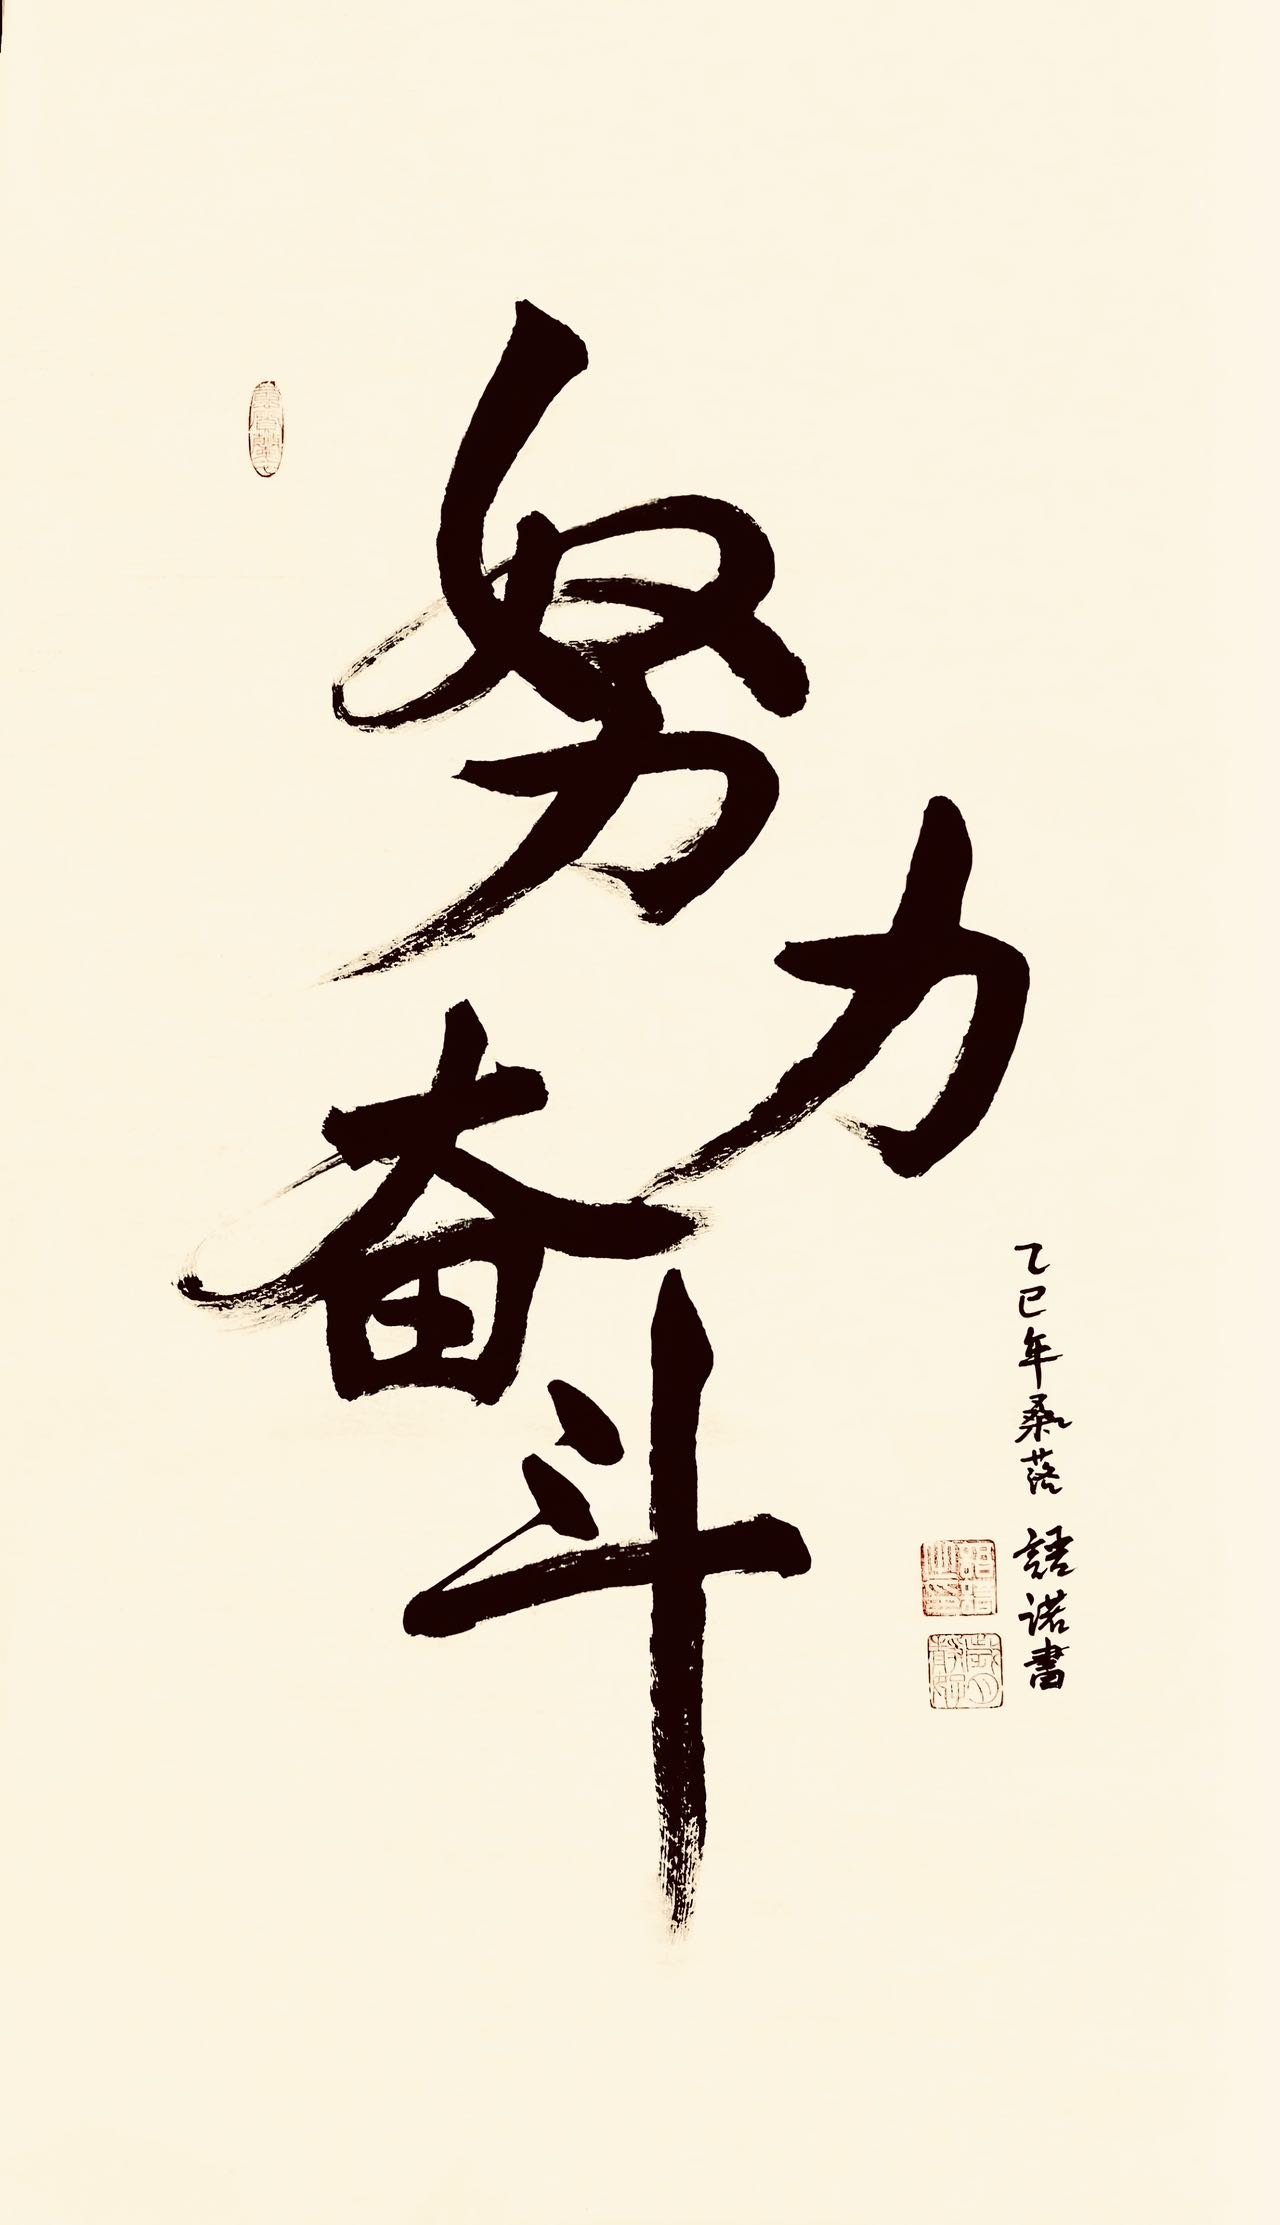 努力
奋斗
乙巳年桑落 語诺書